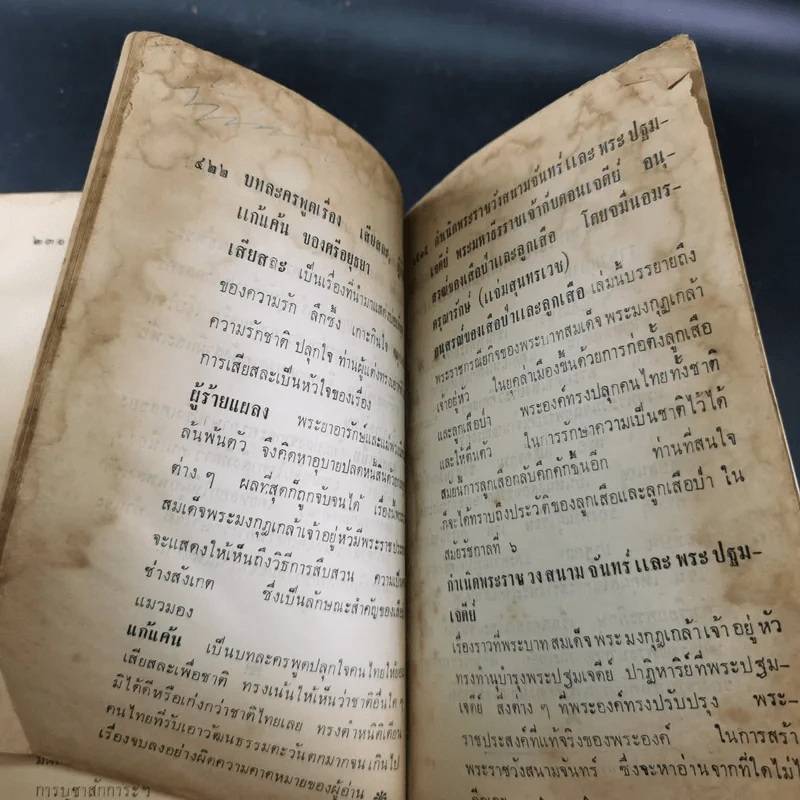 ๒๓๑
๔๒๒ บทละครพูดเรื่อง เสียสละ
แก้แค้น ของศรีอยุธยา
เสียสละ เป็นเรื่องที่นำมาแสดง
ของความรัก ลึกซึ้ง เกาะกินใจ
ความรักชาติ ปลุกใจ ท่านผู้แต่งทรง
การเสียสละเป็นหัวใจของเรื่อง
ผู้ร้ายแผลง พระยาอารักษ์และแม่
ล้นพ้นตัว จึงคิดหาอุบายปลดหนี้สินด้วย
ต่าง ๆ ผลที่สุดก็ถูกจับจนได้ เรื่องนี้
สมเด็จพระมงกุฎเกล้าเจ้าอยู่หัวมีพระราช
จะแสดงให้เห็นถึงวิธีการสืบสวน ความเป็น
ช่างสังเกต ซึ่งเป็นลักษณะสำคัญของ
แมวมอง
แก้แค้น เป็นบทละครพูดปลุกใจคนไทยให้
เสียสละเพื่อชาติ ทรงเน้นให้เห็นว่าชาติอื่นใด ๆ
มิได้ดีหรือเก่งกว่าชาติไทยเลย ทรงตำหนิติเตียน
คนไทยที่รับเอาวัฒนธรรมตะวันตกมากจนเกินไป
เรื่องจบลงอย่างผิดความคาดหมายของผู้อ่าน
การบูชาสักการะๆ
กำเนิดพระราชวังสนามจันทร์ และ พระ ปฐม-
เจดีย์ พระมหาธีรราชเจ้ากับดอนเจดีย์ อนุ-
สรณ์ของเสือป่าและลูกเสือ โดยจมื่นอมร-
ดรุณารักษ์ (แจ่มสุนทรเวช)
อนุสรณ์ของเสือป่าและลูกเสือ เล่มนี้บรรยายถึง
พระราชกรณียกิจของพระบาทสมเด็จ พระมงกุฎเกล้า
เจ้าอยู่หัว ในยุคล่าเมืองขึ้นด้วยการก่อตั้งลูกเสือ
และลูกเสือป่า พระองค์ทรงปลุกคนไทยทั้งชาติ
และให้ตื่นตัว ในการรักษาความเป็นชาติไว้ได้
สมัยนี้การลูกเสือกลับคึกคักขึ้นอีก ท่านที่สนใจ
ก็จะได้ทราบถึงประวัติของลูกเสือและลูกเสือป่า ใน
สมัยรัชกาลที่ ๖
กำเนิดพระราช วัง สนาม จันทร์ และ พระ ปฐม-
เจดีย์
เรื่องราวที่พระบาท สมเด็จ พระ มงกุฎเกล้า เจ้า อยู่ หัว
ทรงทำนุบำรุงพระปฐมเจดีย์ ปาฏิหาริย์ที่พระปฐม-
เจดีย์ สิ่งต่าง ๆ ที่พระองค์ทรงปรับปรุง พระ-
ราชประสงค์ที่แท้จริงของพระองค์ ในการสร้า
พระราชวังสนามจันทร์ ซึ่งจะหาอ่านจากที่ใดไม่ไ